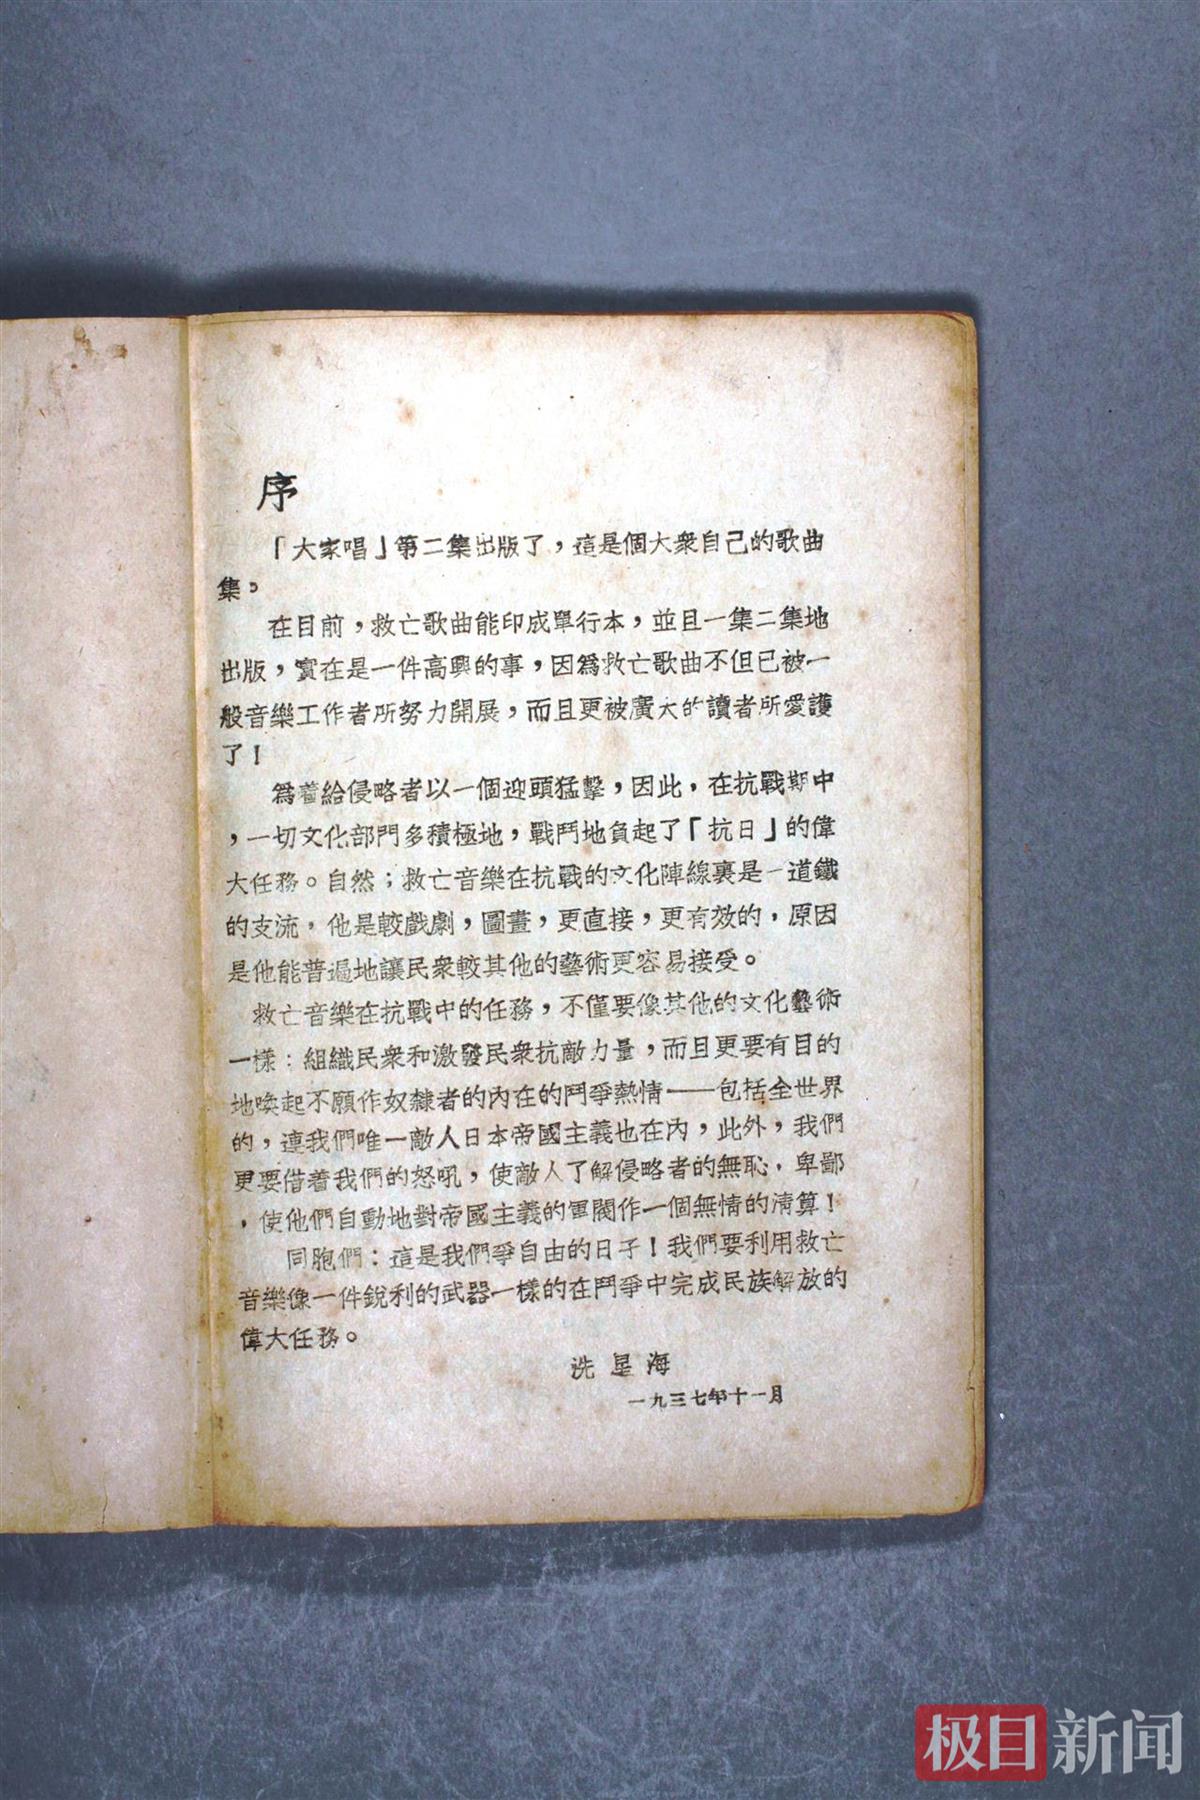 序
「大家唱」第二集出版了，這是個大衆自己的歌曲
集。
在目前，救亡歌曲能印成單行本，並且一集二集地
出版，實在是一件高興的事，因爲救亡歌曲不但已被一
般音樂工作者所努力開展，而且更被廣大的讀者所愛護
了！
爲着給侵略者以一個迎頭猛擊，因此，在抗戰期中
，一切文化部門多積極地，戰鬥地負起了「抗日」的偉
大任務。自然；救亡音樂在抗戰的文化陣線裏是一道鐵
的支流，他是較戲劇，圖畫，更直接，更有效的，原因
是他能普遍地讓民衆較其他的藝術更容易接受。
救亡音樂在抗戰中的任務，不僅要像其他的文化藝術
一樣：組織民衆和激發民衆抗敵力量，而且更要有目的
地喚起不願作奴隸者的內在的鬥爭熱情——包括全世界
的，連我們唯一敵人日本帝國主義也在內，此外，我們
更要借着我們的怒吼，使敵人了解侵略者的無恥，卑鄙
，使他們自動地對帝國主義的軍閥作一個無情的清算！
同胞們：這是我們爭自由的日子！我們要利用救亡
音樂像一件銳利的武器一樣的在鬥爭中完成民族解放的
偉大任務。
冼星海
一九三七年十一月
极目新闻